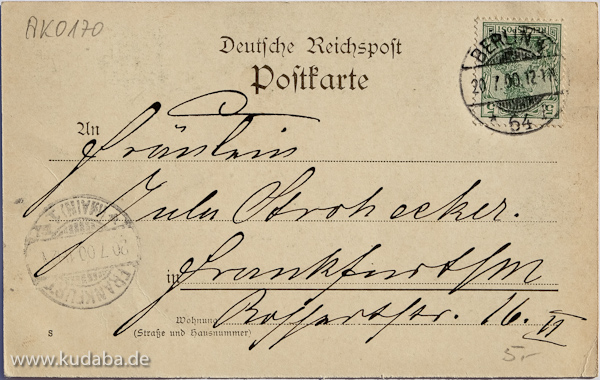 AK0170
Deutsche Reichspost
Postkarte
BERLIN
20 7.00.12-1N
64
REICHSPOST
5 5
An
Fräulein
Strohecker.
in Frankfurt M
Wohnung
(Straße und Hausnummer)
Rossertstr. 16. II
S
FRANKFURT
(MAIN)
20.7.00
www.kudaba.de
5,-